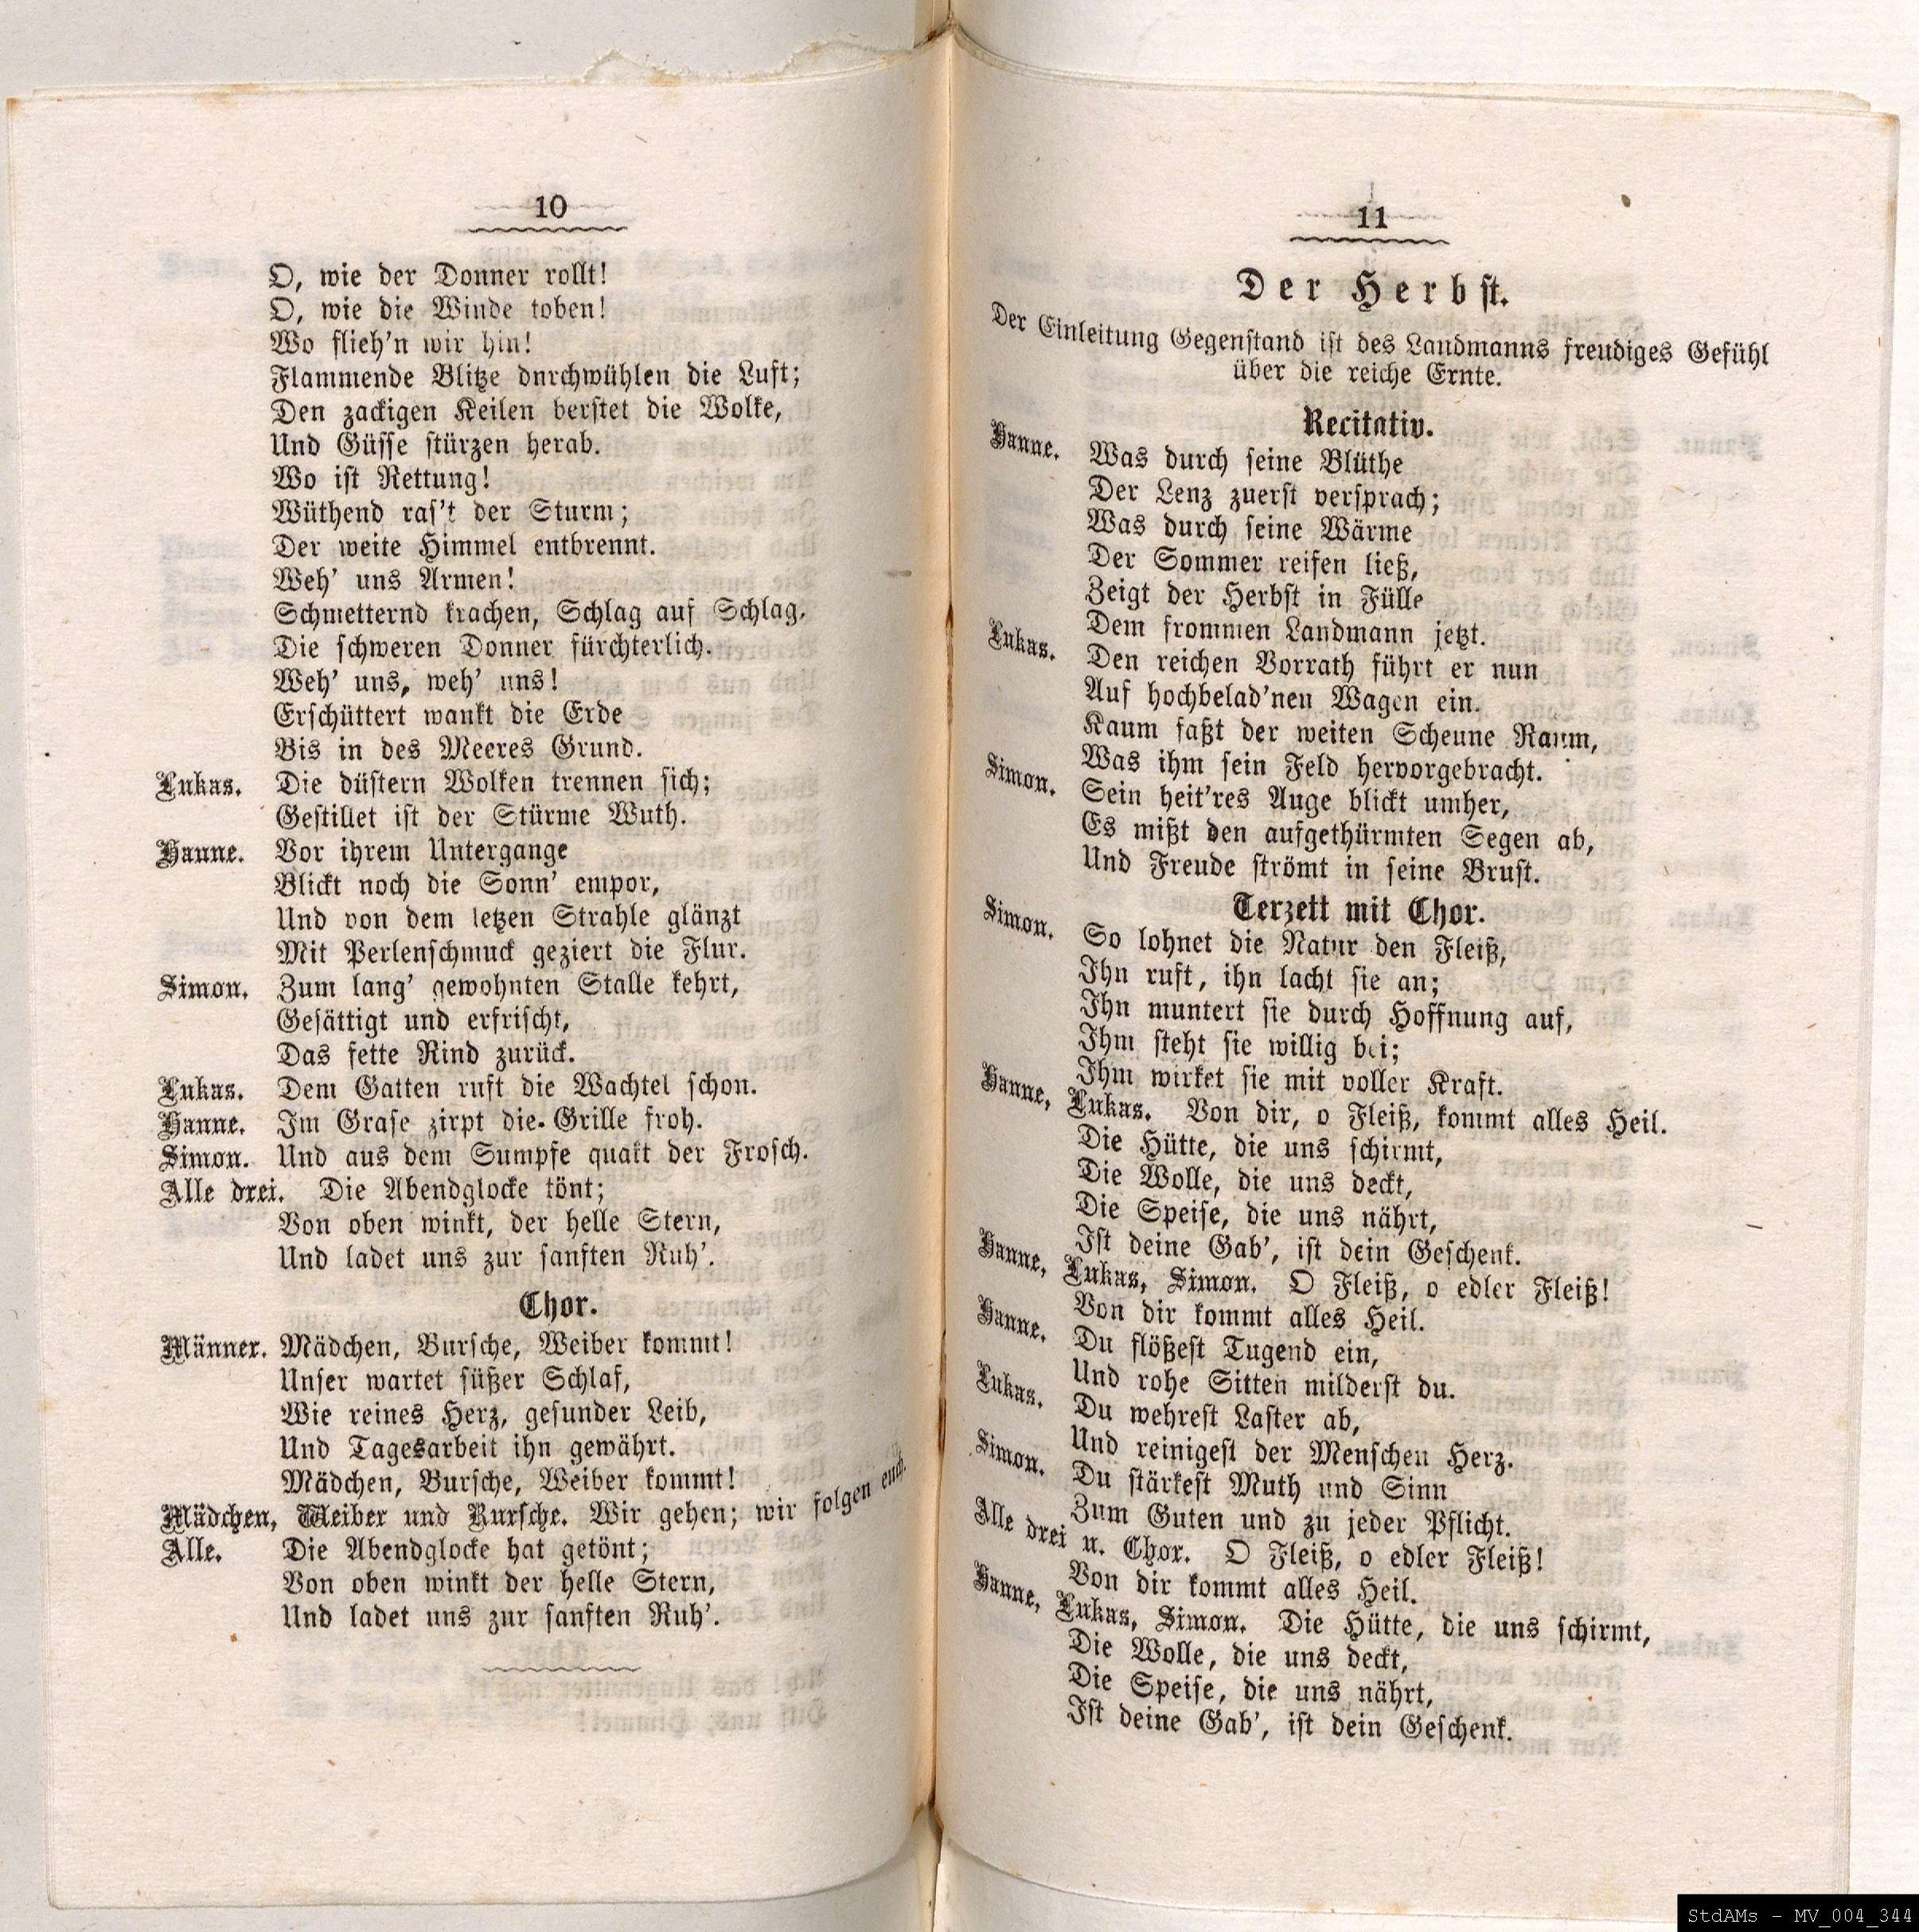 10
O, wie der Donner rollt!
O, wie die Winde toben!
Wo flieh'n wir hin!
Flammende Blitze dnrchwühlen die Luft;
Den zackigen Keilen berstet die Wolke,
Und Güsse stürzen herab.
Wo ist Rettung!
Wüthend ras't der Sturm;
Der weite Himmel entbrennt.
Weh' uns Armen!
Schmetternd krachen, Schlag auf Schlag,
Die schweren Donner fürchterlich.
Weh' uns, weh' uns!
Erschüttert wankt die Erde
Bis in des Meeres Grund.
Lukas. Die düstern Wolken trennen sich;
Gestillet ist der Stürme Wuth.
Hanne. Vor ihrem Untergange
Blickt noch die Sonn' empor,
Und von dem letzen Strahle glänzt
Mit Perlenschmuck geziert die Flur.
Simon. Zum lang' gewohnten Stalle kehrt,
Gesättigt und erfrischt,
Das fette Rind zurück.
Lukas. Dem Gatten ruft die Wachtel schon.
Hanne. Im Grase zirpt die Grille froh.
Simon. Und aus dem Sumpfe quakt der Frosch.
Alle drei. Die Abendglocke tönt;
Von oben winkt, der helle Stern,
Und ladet uns zur sanften Ruh'.
Chor.
Männer. Mädchen, Bursche, Weiber kommt!
Unser wartet süßer Schlaf,
Wie reines Herz, gesunder Leib,
Und Tagesarbeit ihn gewährt.
Mädchen, Bursche, Weiber kommt!
Mädchen, Weiber und Bursche. Wir gehen; wir folgen euch.
Alle. Die Abendglocke hat getönt;
Von oben winkt der helle Stern,
Und ladet uns zur sanften Ruh'.
11
Der Herbst.
Der Einleitung Gegenstand ist des Landmanns freudiges Gefühl
über die reiche Ernte.
Recitativ.
Hanne. Was durch seine Blüthe
Der Lenz zuerst versprach;
Was durch seine Wärme
Der Sommer reifen ließ,
Zeigt der Herbst in Fülle
Dem frommen Landmann jetzt.
Lukas. Den reichen Vorrath führt er nun
Auf hochbelad'nen Wagen ein.
Kaum faßt der weiten Scheune Raum,
Was ihm sein Feld hervorgebracht.
Simon. Sein heit'res Auge blickt umher,
Es mißt den aufgethürmten Segen ab,
Und Freude strömt in seine Brust.
Terzett mit Chor.
Simon. So lohnet die Natur den Fleiß,
Ihn ruft, ihn lacht sie an;
Ihn muntert sie durch Hoffnung auf,
Ihm steht sie willig bei;
Ihm wirket sie mit voller Kraft.
Hanne, Lukas. Von dir, o Fleiß, kommt alles Heil.
Die Hütte, die uns schirmt,
Die Wolle, die uns deckt,
Die Speise, die uns nährt,
Ist deine Gab', ist dein Geschenk.
Hanne, Lukas, Simon. O Fleiß, o edler Fleiß!
Von dir kommt alles Heil.
Hanne. Du flößest Tugend ein,
Und rohe Sitten milderst du.
Lukas. Du wehrest Laster ab,
Und reinigest der Menschen Herz.
Simon. Du stärkest Muth und Sinn
Zum Guten und zu jeder Pflicht.
Alle drei u. Chor. O Fleiß, o edler Fleiß!
Von dir kommt alles Heil.
Hanne, Lukas, Simon. Die Hütte, die uns schirmt,
Die Wolle, die uns deckt,
Die Speise, die uns nährt,
Ist deine Gab', ist dein Geschenk.
StdAMs - MV_004_344